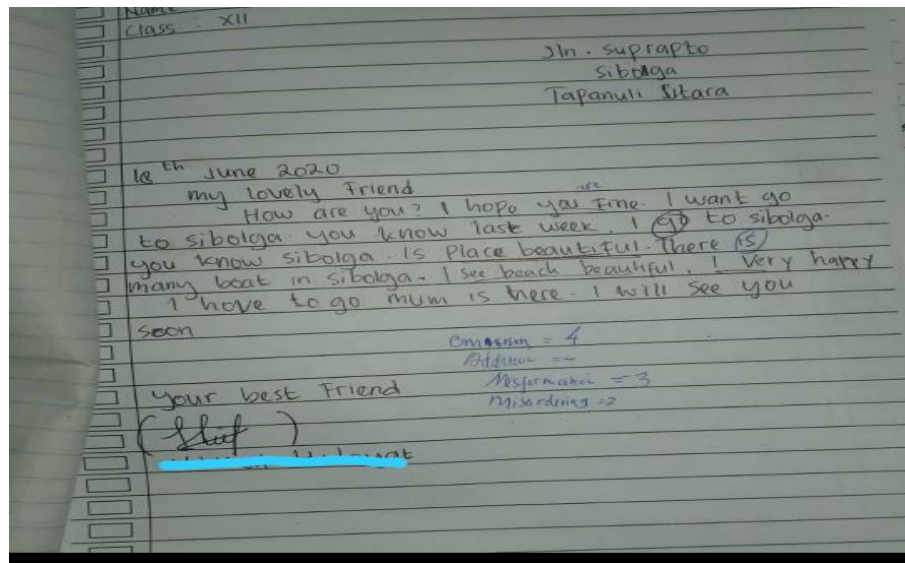 Name
Class : XII
Jln. Suprapto
Sibolga
Tapanuli Utara
th June 2020
my lovely Friend
are
How are you? I hope you Fine. I want go
to sibolga. you know last week. I go to sibolga.
you know sibolga. Is Place beautiful. There is
many boat in sibolga. I see beach beautiful. I very happy
I have to go mum is here. I will see you
soon
Omission = 4
Addition = -
Misformation = 3
Misordering = 2
your best Friend